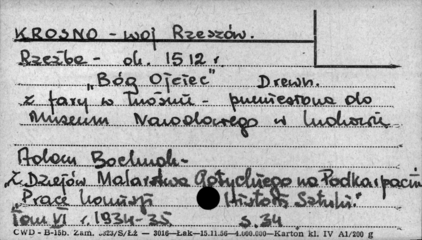 KROSNO - woj Rzeszów.
Rzeźba - ok. 1512 r.
"Bóg Ojciec" Drewn.
z fary w Krośnie - przeniesiona do
Museum Narodowego w Krakowie
Adam Bochnak -
z Dziejów Malarstwa Gotyckiego na Podkarpaciu
"Prace Komisji Historji Sztuki"
Tom VI r. 1934-35. s. 34
CWD - B-15b. Zam. S/Łź - 3016 - Łak - 15.11.56 - 4.000.000 - Karton kl. IV A1/200 g